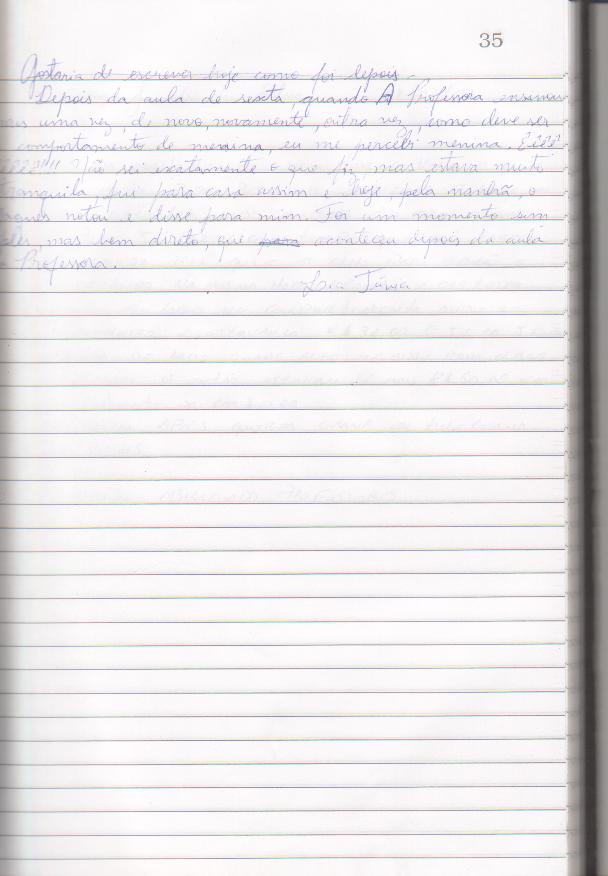 35
Gostaria de escrever hoje como foi depois.
Depois da aula de sexta, quando A Professora ensinou
mais uma vez, de novo, novamente, outra vez, como deve ser
comportamento de menina, eu me percebi menina. Eeeee
eeeee!!!! Não sei exatamente o que fiz mas estava muito
tranquila, fui para casa assim e hoje, pela manhã, o
notou e disse para mim. Foi um momento sim
mas bem direto, que para aconteceu depois da aula
Professora.